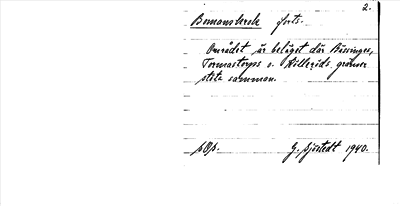 2.
Bomansbeck forts.
Området är beläget där Bissinges,
Tormastorps o. Hillerids gränser
stöta samman.
G. Sjöstedt 1940.